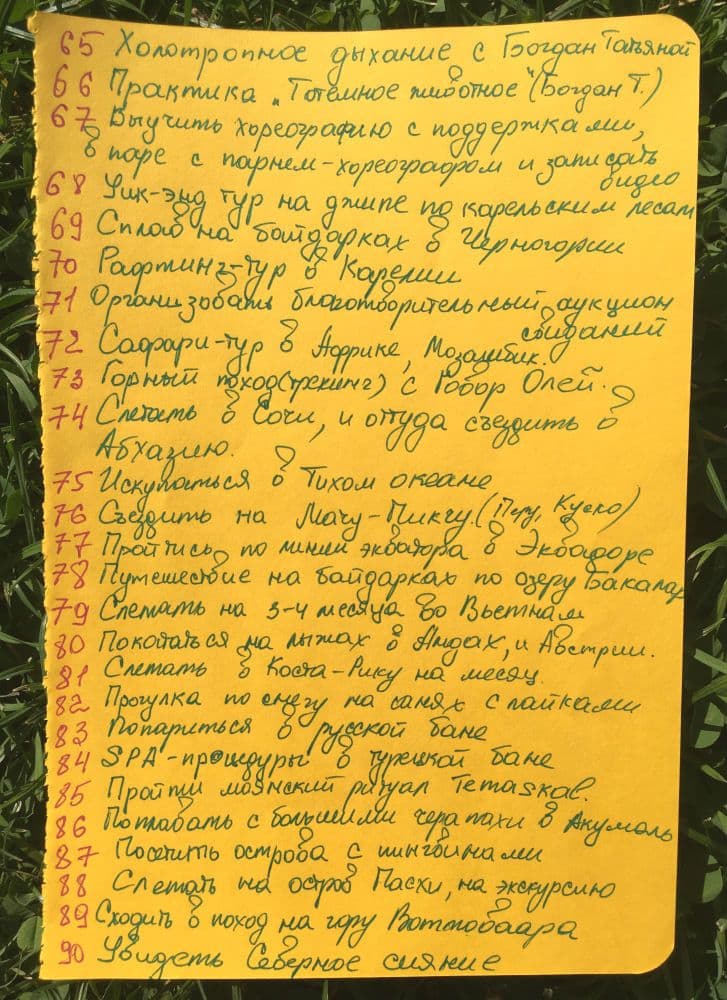 65 Холотропное дыхание с Богдан Татьяной
66 Практика „Тотемное животное" (Богдан Т.)
67 Выучить хореографию с поддержками,
в паре с парнем-хореографом и записать
видео
68 Уик-энд тур на джипе по карельским лесам
69 Сплав на байдарках в Черногории
70 Рафтинг-тур в Карелии
71 Организовать благотворительный аукцион
свиданий
72 Сафари-тур в Африке, Мозамбик.
73 Горный поход (трекинг) с Говор Олей.
74 Слетать в Сочи, и оттуда съездить в
Абхазию.
75 Искупаться в Тихом океане
76 Съездить на Мачу-Пикчу. (Перу, Куско)
77 Пройтись по линии экватора в Эквадоре
78 Путешествие на байдарках по озеру Бакалар
79 Слетать на 3-4 месяца во Вьетнам
80 Покататься на лыжах в Андах, и Австрии.
81 Слетать в Коста-Рику на месяц.
82 Прогулка по снегу на санях с лайками
83 Попариться в русской бане
84 SPA-процедуры в турецкой бане
85 Пройти маянский ритуал Temaskal.
86 Поплавать с большими черепахи в Акумаль
87 Посетить острова с пингвинами
88 Слетать на остров Пасхи, на экскурсию
89 Сходить в поход на гору Воттоваара
90 Увидеть Северное сияние